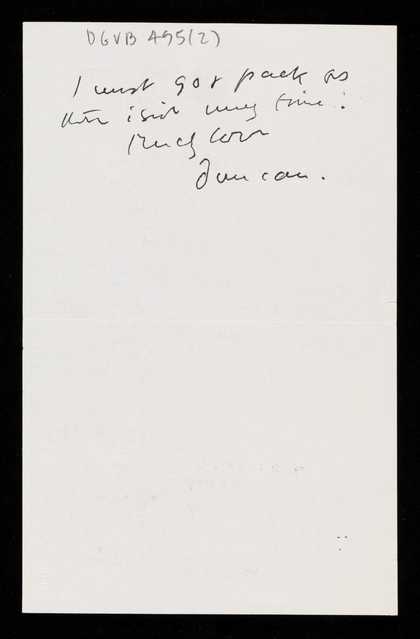 DGVB A95(2)
I must go & pack as
there isn't much time.
Much love
Duncan.